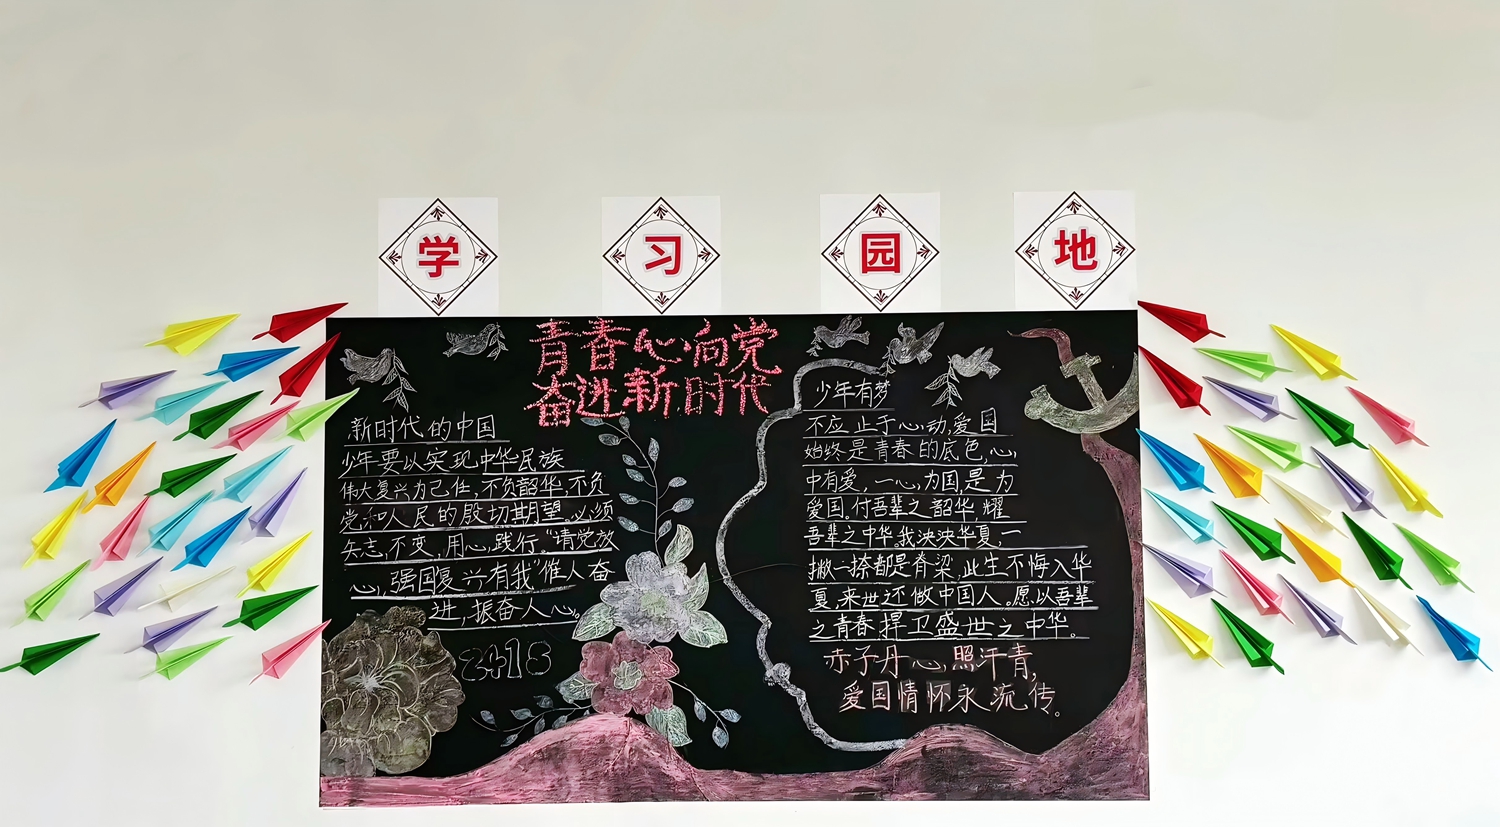 学 习 园 地
青春心向党
奋进新时代
新时代的中国
少年要以实现中华民族
伟大复兴为己任,不负韶华,不负
党和人民的殷切期望。必须
矢志,不变,用心,践行。“请党放
心,强国复兴有我”催人奋
进,振奋人心。
2415
少年有梦
不应止于心动,爱国
始终是青春的底色,心
中有爱,一心,为国,是为
爱国。付吾辈之韶华,耀
吾辈之中华,我泱泱华夏,一
撇一捺都是脊梁,此生不悔入华
夏,来世还做中国人。愿以吾辈
之青春捍卫盛世之中华。
赤子丹心,照汗青,
爱国情怀永流传。